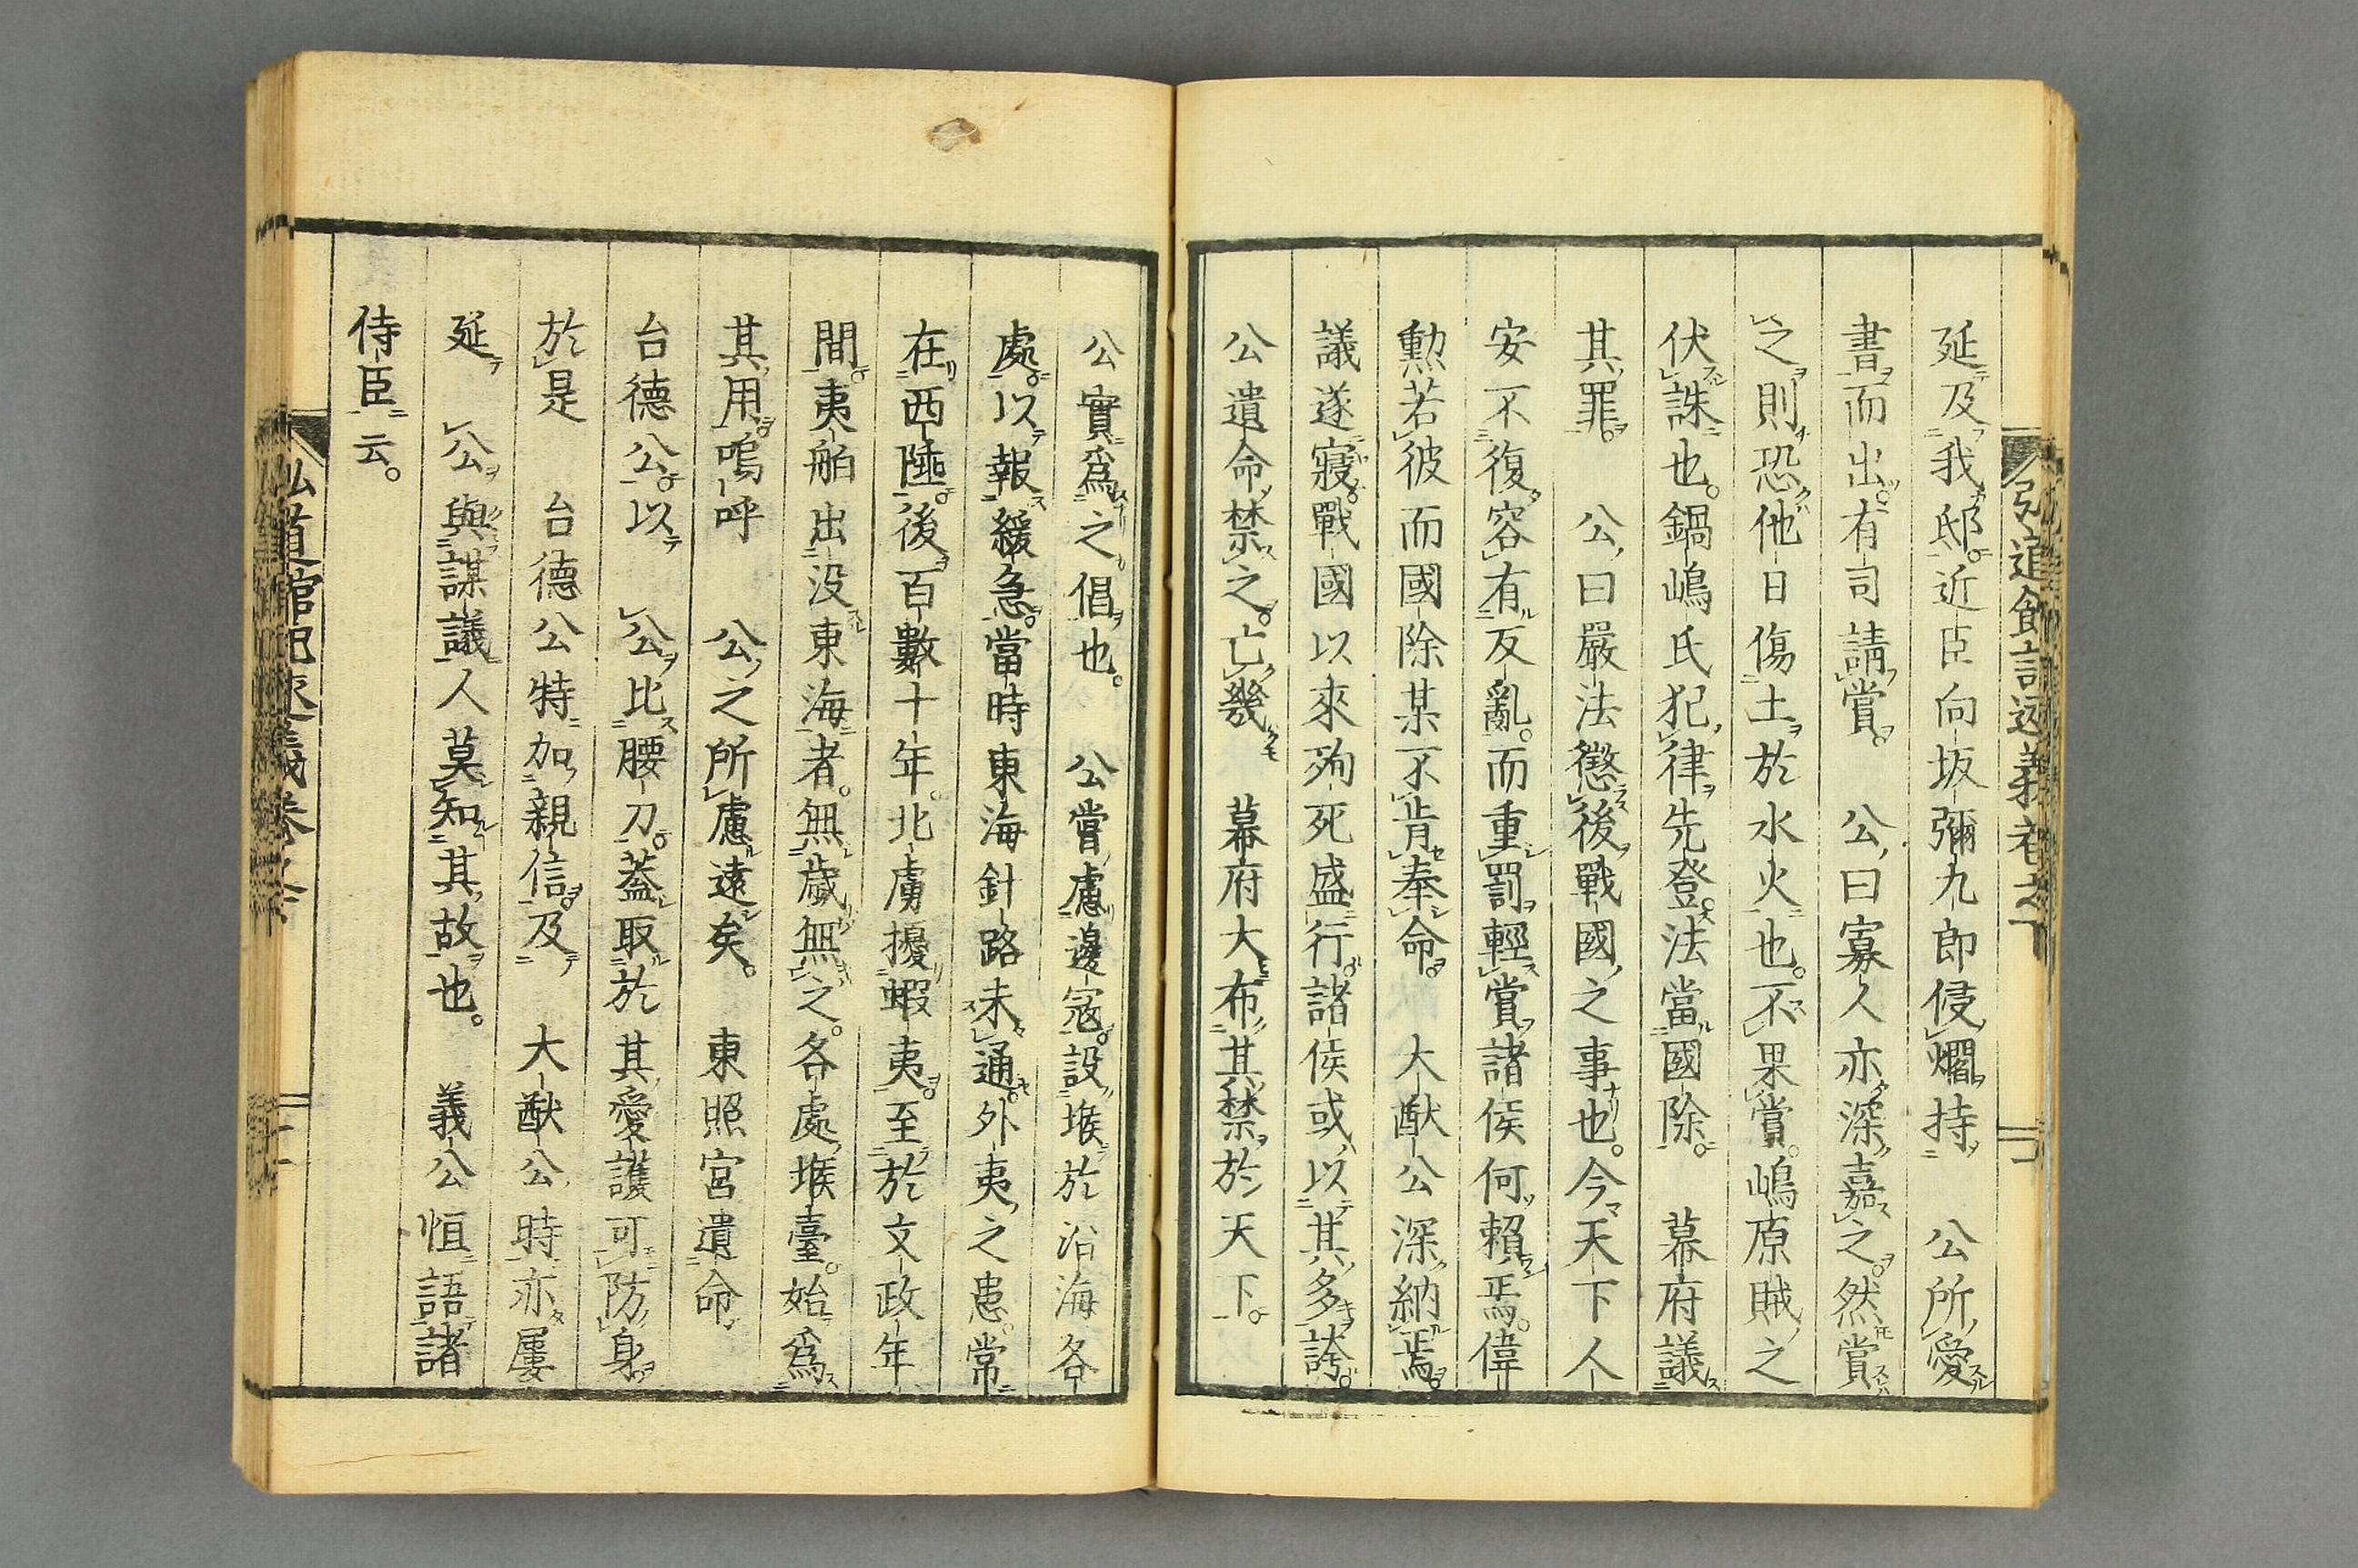 延及我邸。近臣向坂彌九郎侵爛持　公所愛
書而出。有司請賞。　公曰寡人亦深嘉之。然賞
之則恐他日傷士於水火也。不果賞。嶋原賊之
伏誅也。鍋嶋氏犯律先登。法當國除。　幕府議
其罪。　公曰嚴法懲後戰國之事也。今天下人
安不復容有反亂。而重罰輕賞諸侯何賴焉。偉
勲若彼而國除某不肯奉命。　大猷公深納焉。
議遂寢。戰國以來殉死盛行。諸侯或以其多誇。
公遺命禁之。亡幾　幕府大布其禁於天下。
公實爲之倡也。　公嘗慮邊寇。設堠於沿海各
處。以報緩急。當時東海針路未通。外夷之患。常
在西陲。後百數十年。北虜擾蝦夷。至於文政年
間。夷舶出没東海者。無歳無之。各處堠臺。始爲
其用。嗚呼　公之所慮遠矣。　東照宮遺命
台德公。以　公比腰刀。蓋取於其愛護可防身
於是　台德公特加親信。及　大猷公時亦屢
延　公與謀議人莫知其故也。　義公恒語諸
侍臣云。
弘道館記述義卷之下